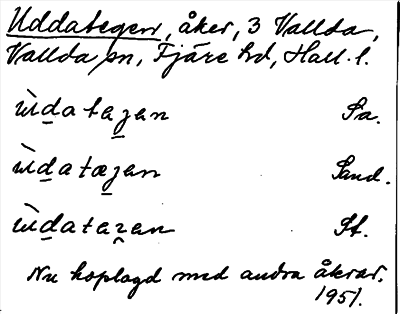 Uddategen, åker, 3 Vallda,
Vallda sn, Fjäre hd, Hall. l.
ùdataʒan Sa.
ùdatæʒan Sand.
ùdataʒan St.
Nu hoplagd med andra åkrar.
1951.